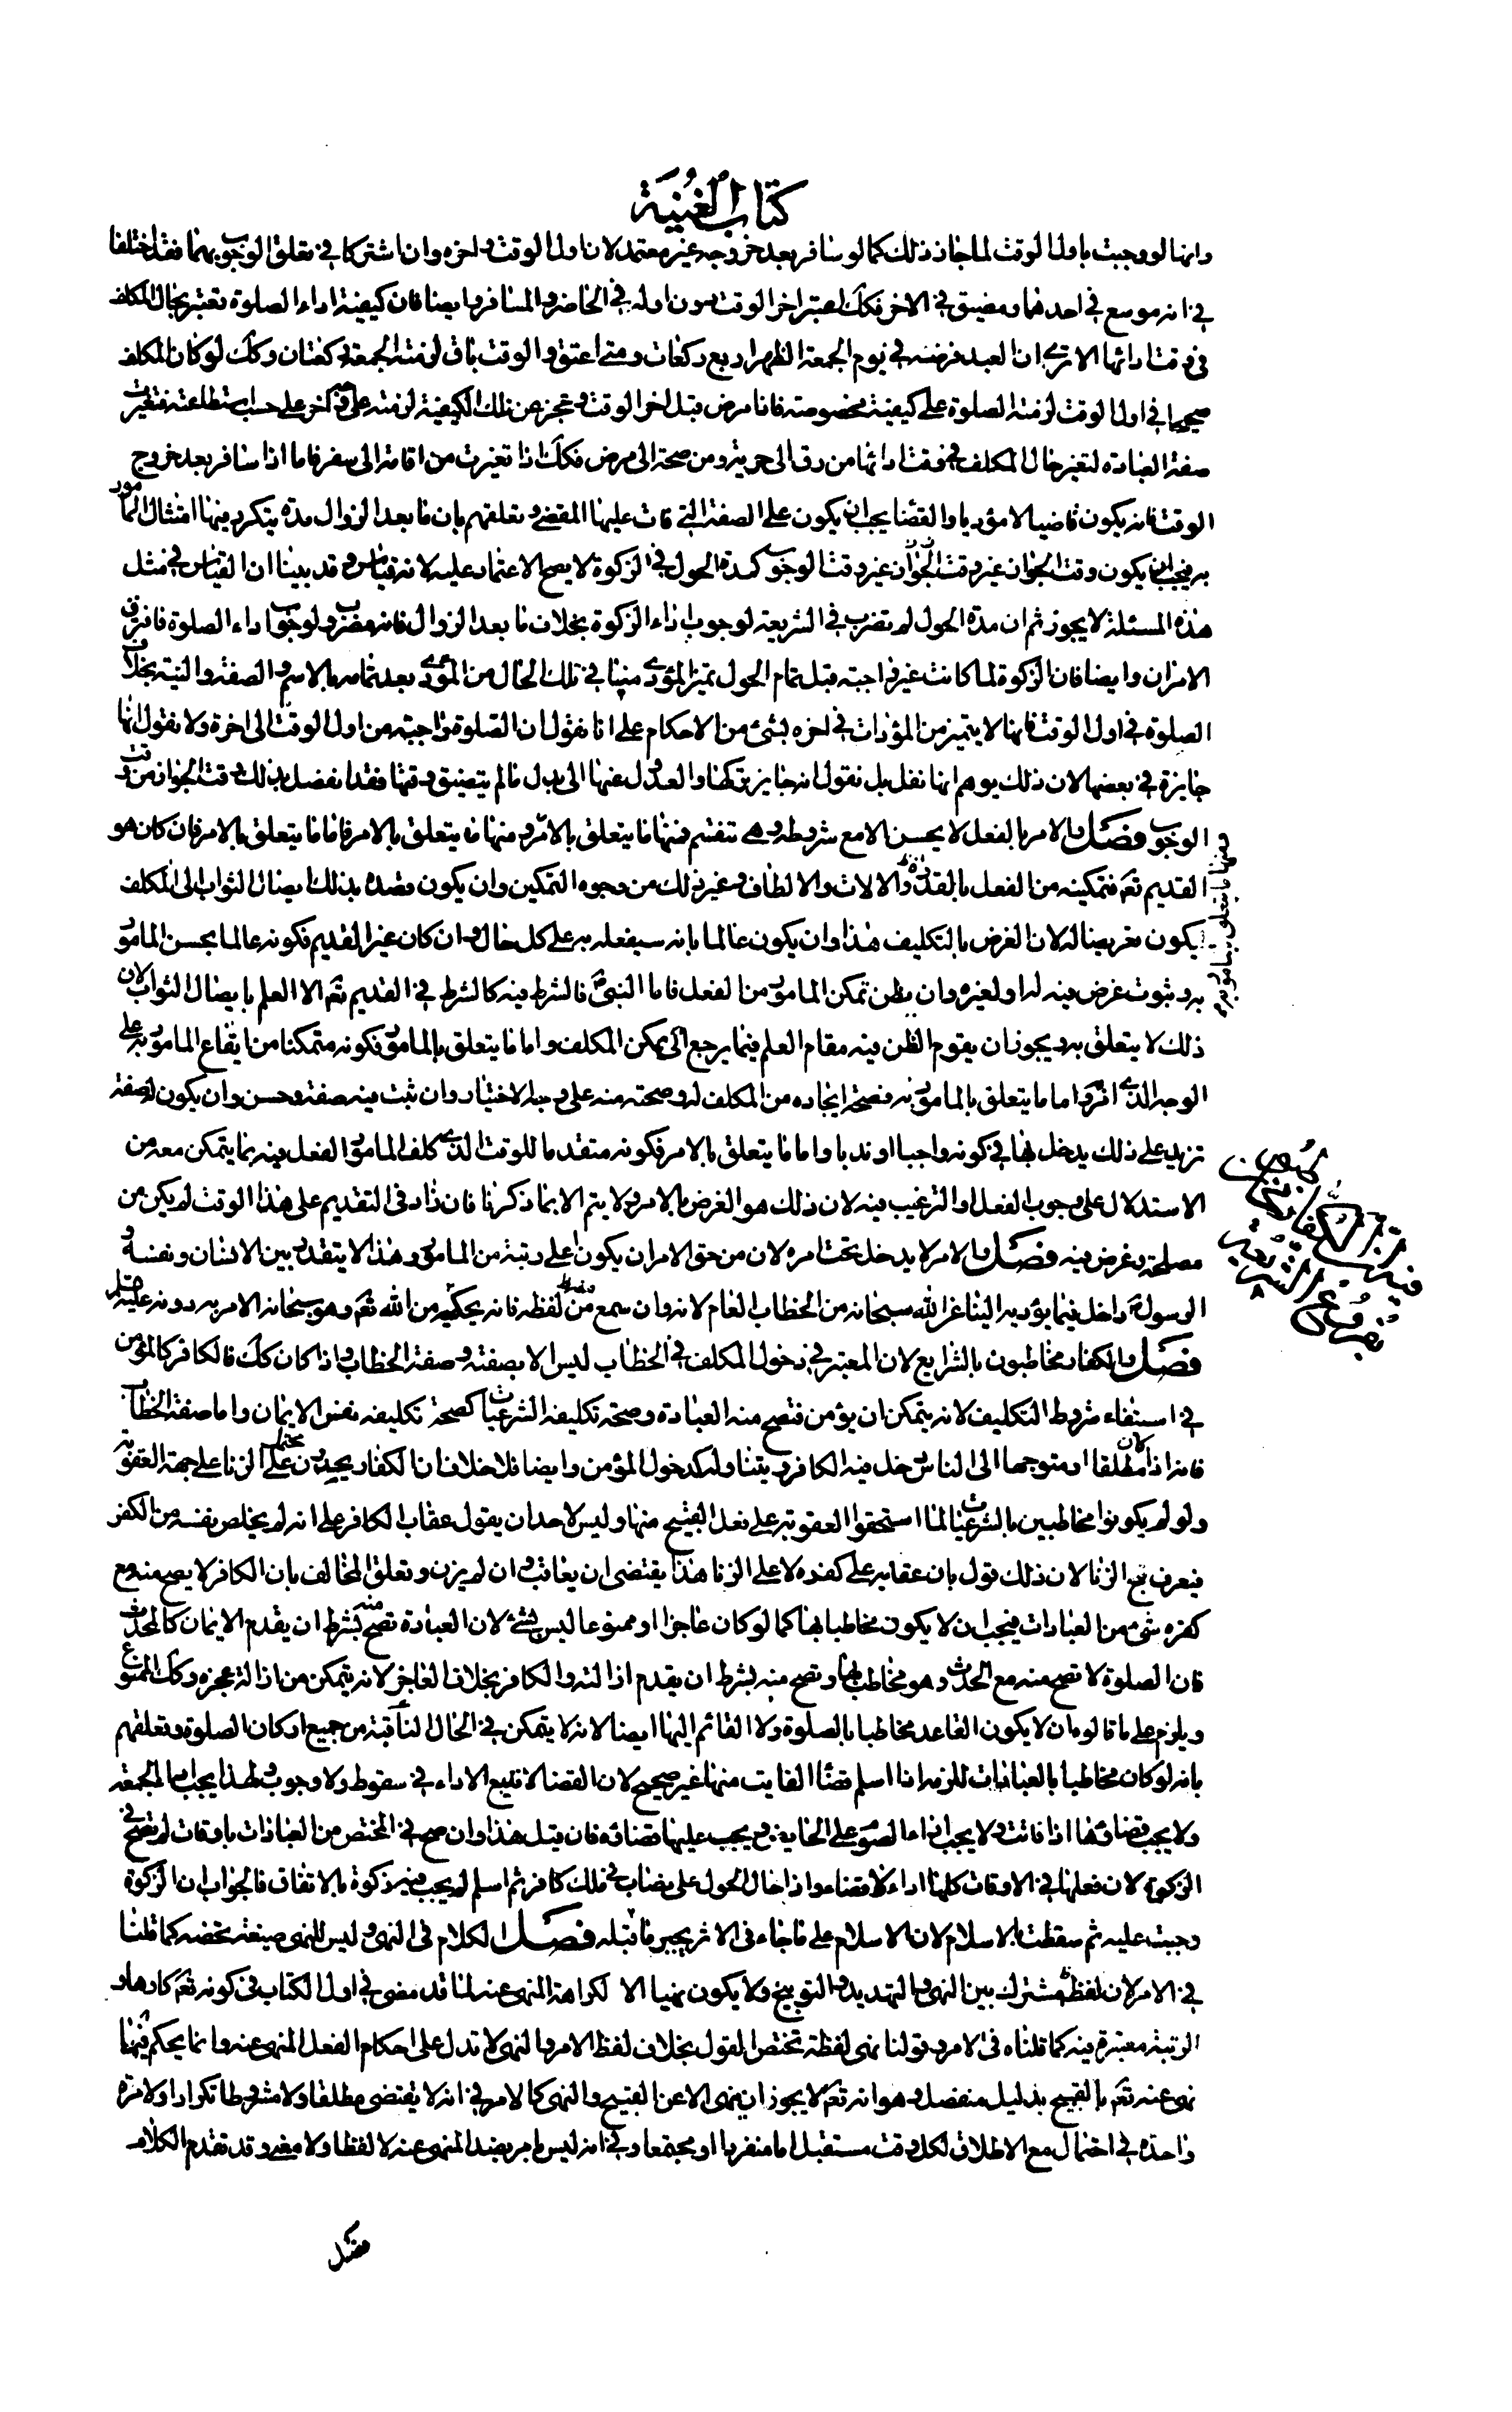 كتاب الغنية
وانها لو وجبت باول الوقت لما جاز ذلك كما لو سافر بعد خروجه غير معتمد لان اول الوقت و اخره وان اشتركا في تعلق الوجوب بهما فقد اختلفا
في انه موسع في احدهما ومضيق في الاخر فكك اعتبر اخر الوقت دون اوله في الحاضر والمسافر وايضا فان كيفية اداء الصلوة تعتبر بحال المكلف
في وقت ادائها الا ترى ان العبد فرضه في يوم الجمعة الظهر اربع ركعات ومتى اعتق والوقت باق لزمته الجمعة ركعتان وكك لو كان المكلف
صحيحا في اول الوقت لزمته الصلوة على كيفية مخصوصة فاذا مرض قبل اخر الوقت و عجز عن تلك الكيفية لزمته على وجه اخر على حسب استطاعته فتغيرت
صفة العبادة لتغير حال المكلف في وقت ادائها من رق الى حرية ومن صحة الى مرض فكك اذا تغيرت من اقامة الى سفر فاما اذا سافر بعد خروج
الوقت فانه يكون قاضيا لا مؤديا والقضا يجب ان يكون على الصفة التي فات عليها المقضي و تعلقهم بان ما بعد الزوال مدة يتكرر فيها امتثال المامور
به فيجب ان يكون وقت الجواز غير وقت الجواز غير وقت الوجوب كمدة الحول في الزكوة لا يصح الاعتماد عليه لانه قياس وقد بينا ان القياس في مثل
هذه المسئلة لا يجوز ثم ان مدة الحول لم تضرب في الشريعة لوجوب اداء الزكوة بخلاف ما بعد الزوال فانه مضروب لوجوب اداء الصلوة فافترق
الامران وايضا فان الزكوة لما كانت غير واجبة قبل تمام الحول تميز المؤدى منها في تلك الحال من المؤدى بعد تمامه بالاسم و الصفة والنية بخلاف
الصلوة في اول الوقت فانها لا يتميز من المؤداة في اخره بشئ من الاحكام على انا نقول ان الصلوة واجبة من اول الوقت الى اخره ولا نقول انها
جايزة في بعضها لان ذلك يوهم انها نفل بل نقول انه جايز تركها والعدول عنها الى بدل ما لم يتضيق وقتها فقد انفصل بذلك وقت الجواز من وقت
الوجوب فصل والامر بالفعل لا يحسن الا مع شروطه وهي تنقسم فمنها ما يتعلق بالامر ومنها ما يتعلق بالامر فاما ما يتعلق بالامر فان كان هو
ومنها ما يتعلق بالمامور به
القديم تع فتمكينه من الفعل بالقدرة والالات والالطاف و غير ذلك من وجوه التمكين وان يكون قصده بذلك ايصال الثواب الى المكلف
ليكون تعريضا له لان الغرض بالتكليف هذا وان يكون عالما بانه سيفعله به على كل حال وان كان غير القديم فكونه عالما بحسن المامور
به و ثبوت غرض فيه له او لغيره وان يظن تمكن المامور من الفعل فاما النبي ص فالشرط فيه كالشرط في القديم تع الا العلم بايصال الثواب لان
ذلك لا يتعلق به و يجوز ان يقوم الظن فيه مقام العلم فيما يرجع الى تمكن المكلف واما ما يتعلق بالمامور فكونه متمكنا من ايقاع المامور به على
الوجه الذي امر و اما ما يتعلق بالمامور به فصحة ايجاده من المكلف له وصحته منه على وجه الاختيار وان ثبت فيه صفة وحسن وان يكون له صفة
تزيد على ذلك يدخل بها في كونه واجبا او ندبا واما ما يتعلق بالامر فكونه متقدما للوقت الذي كلف المامور الفعل فيه بما يتمكن معه من
الاستدلال على وجوب الفعل او الترغيب فيه لان ذلك هو الغرض بالامر ولا يتم الا بما ذكرنا فان زاد في التقديم على هذا الوقت لم يكن من
مصلحة و غرض فيه فصل والامر لا يدخل تحت امره لان من حق الامر ان يكون اعلى رتبة من المامور وهذا لا يتقدر بين الانسان ونفسه و
الرسول ص داخل فيما يؤديه الينا عن الله سبحانه من الخطاب العام لانه وان سمع من لفظه فانه يحكيه من الله تع وهو سبحانه الامر به دونه عليه السلم
فصل والكفار مخاطبون بالشرايع لان المعتبر في دخول المكلف في الخطاب ليس الا بصفته و صفة الخطاب واذا كان كك فالكافر كالمؤمن
في استيفاء شروط التكليف لانه يتمكن ان يؤمن فتصح منه العبادة وصحة تكليفه الشرعيات كصحة تكليفه نفس الايمان واما صفة الخطاب
فانه اذا كان مطلقا او متوجها الى الناس دخل فيه الكافر و يتناوله كدخول المؤمن وايضا فلا خلاف ان الكفار يحدون على الزنا على جهة العقوبة
ولو لم يكونوا مخاطبين بالشرعيات لما استحقوا العقوبة على فعل القبيح منها وليس لاحد ان يقول عقاب الكافر على انه لم يخلص نفسه من الكفر
فيعرف قبح الزنا لان ذلك قول بان عقابه على كفره لا على الزنا هذا يقتضى ان يعاقب وان لم يزن وتعلق المخالف بان الكافر لا يصح منه مع
كفره شئ من العبادات فيجب ان لا يكون مخاطبا بها كما لو كان عاجزا او ممنوعا ليس بشئ لان العبادة تصح منه بشرط ان يقدم الايمان كالمحدث
فان الصلوة لا تصح منه مع الحدث وهو مخاطب بها وتصح منه بشرط ان يقدم ازالته والكافر بخلاف العاجز لانه يتمكن من ازالة عجزه وكك الممنوع
ويلزم على ما قالوه ان لا يكون القاعد مخاطبا بالصلوة ولا القائم اليها ايضا لانه لا يتمكن في الحال الثانية من جميع اركان الصلوة وتعلقهم
بانه لو كان مخاطبا بالعبادات للزمه اذا اسلم قضاء الفايت منها غير صحيح لان القضا لا يتبع الاداء في سقوط ولا وجوب ولهذا يجب اداء الجمعة
ولا يجب قضاؤها اذا فاتت ولا يجب اداء الصوم على الحايض و يجب عليها قضائه فان قيل هذا وان صح في المختص من العبادات باوقات لم يصح في
الزكوة لان فعلها في الاوقات كلها اداء لا قضاء واذا حال الحول على نصاب في ملك كافر ثم اسلم لم يجب فيه زكوة بالاتفاق فالجواب ان الزكوة
وجبت عليه ثم سقطت بالاسلام لان الاسلام على ما جاء في الاثر يجب ما قبله فصل الكلام في النهى و ليس للنهى صيغة تخصه كما قلنا
في الامر لان لفظه مشترك بين النهى و التهديد و التوبيخ ولا يكون نهيا الا لكراهة المنهى عنه لما قد مضى في اول الكتاب في كونه تع كارها و
الرتبة معتبرة فيه كما قلناه في الامر وقولنا نهى لفظة تختص القول بخلاف لفظ الامر والنهى لا تدل على احكام الفعل المنهى عنه وانما يحكم فيما
نهى عنه تع بالقبيح بدليل منفصل وهو انه تع لا يجوز ان ينهى الا عن القبيح والنهى كالامر في انه لا يقتضى مطلقا ولا مشروطا تكرارا ولا مرة
واحدة في احتمال مع الاطلاق لكل وقت مستقبل اما منفردا او مجتمعا و في انه ليس بامر بضد المنهى عنه لا لفظا ولا معنى وقد تقدم الكلام